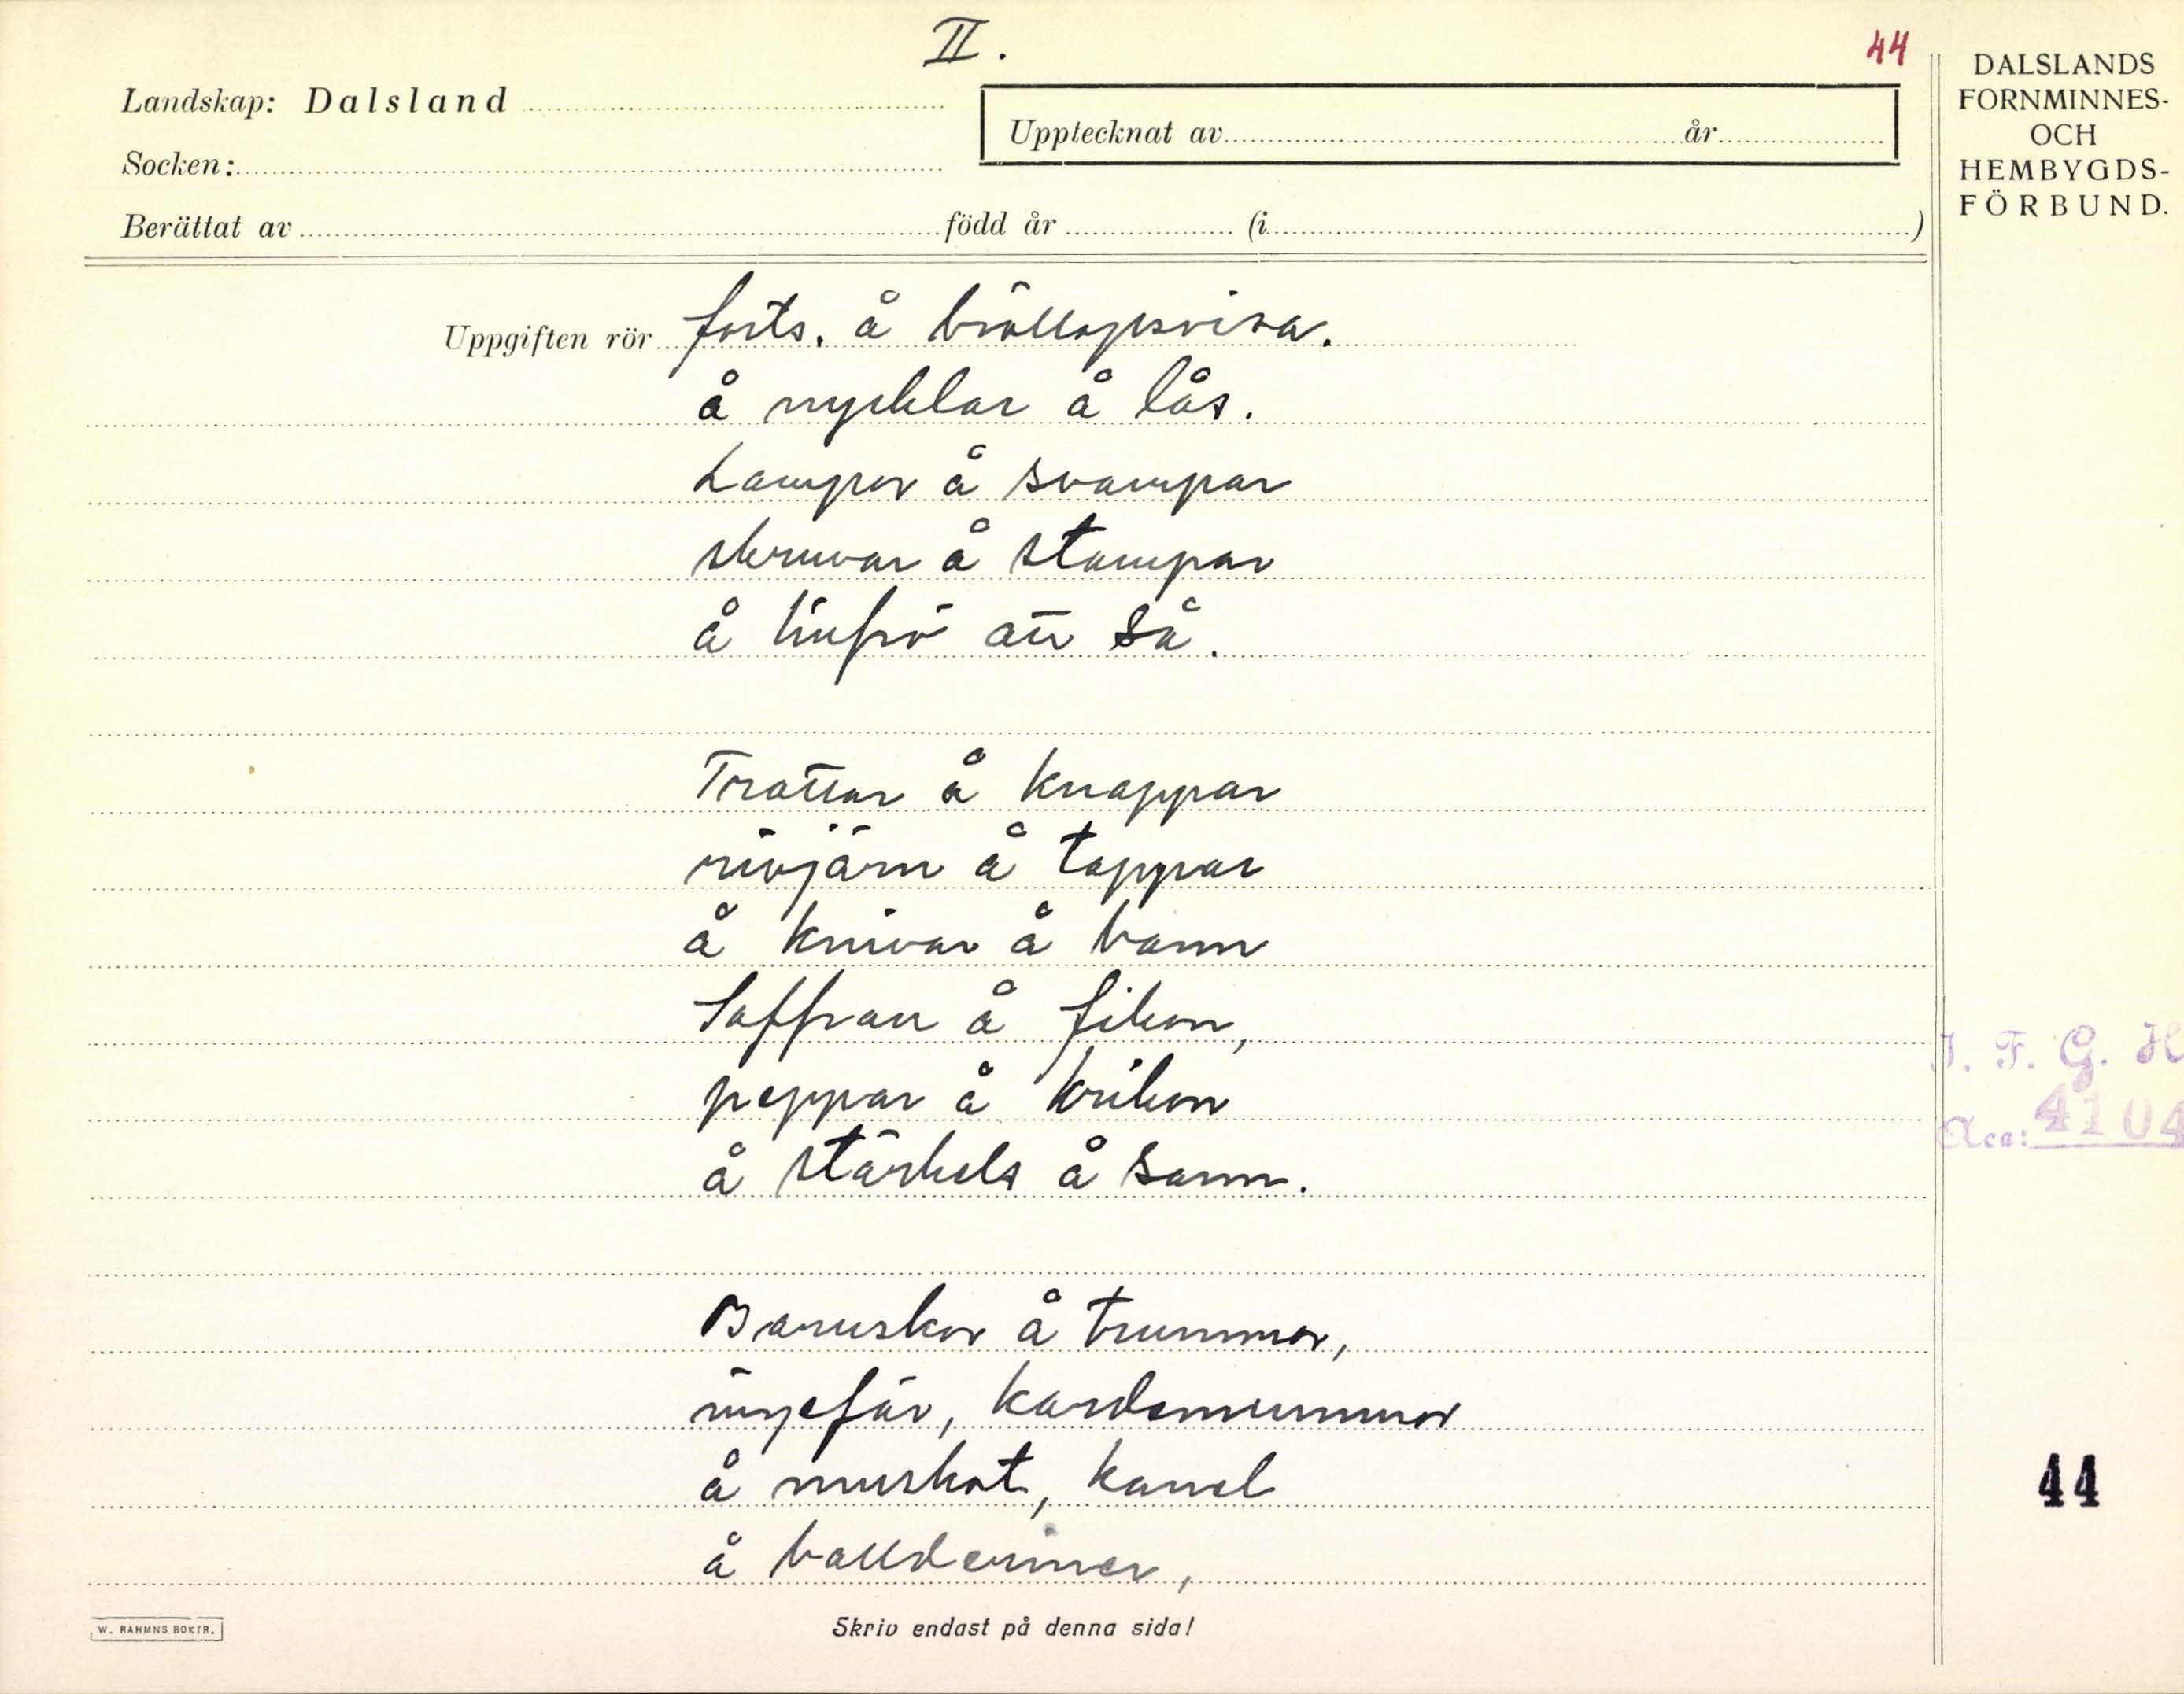 II.
44
Landskap: Dalsland
Upptecknat av år
Socken:
Berättat av född år (i )
DALSLANDS
FORNMINNES-
OCH
HEMBYGDS-
FÖRBUND.
Uppgiften rör forts. å bröllopsvisa.
å nycklar å lås.
Lampor å svampar
skruvar å stampar
å linfrö att så.
Trattar å knappar
rivjärn å tappar
å knivar å barn
Saffran å fikon,
peppar å krikon
å stärkels å
Baruskor å trummor,
ingefär, kardemummor
å muskot, kanel
å
I. F. G. H
Acc: 4104
44
W. RAHMNS BOKTR.
Skriv endast på denna sida!